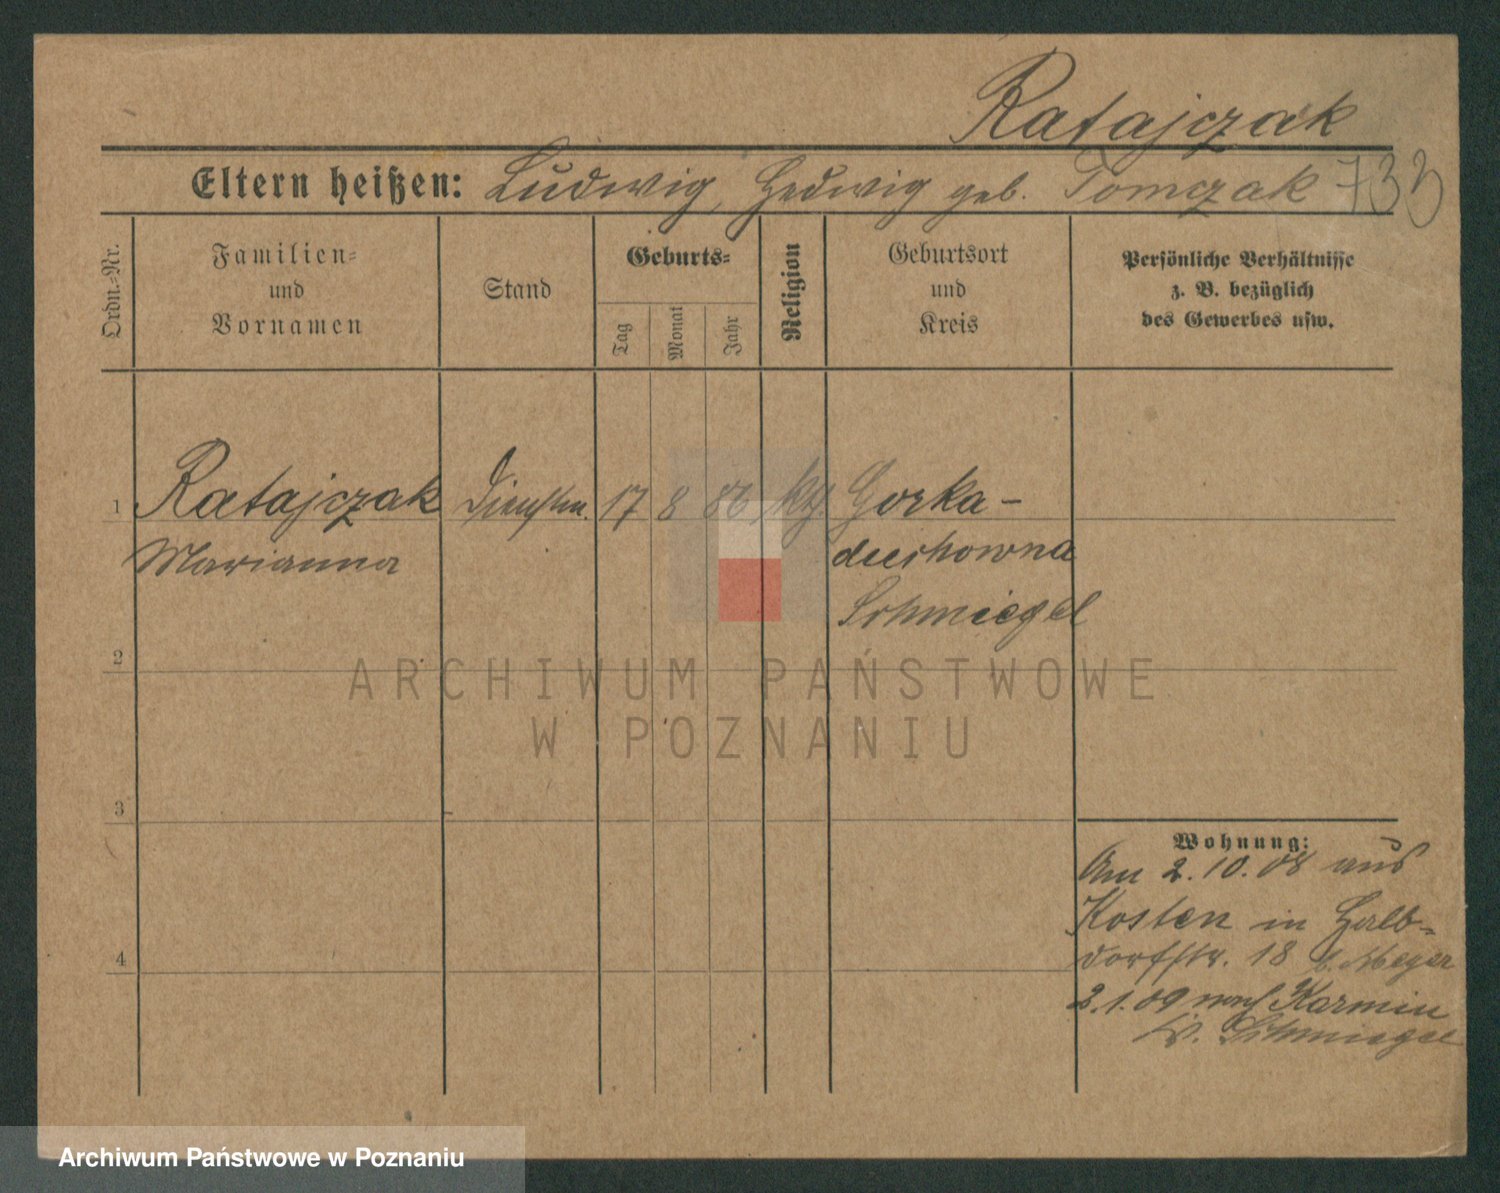 Ratajczak
Eltern heißen: Ludwig, Hedwig geb. Tomczak 733
Ordn.-Nr.
Familien-
und
Vornamen
Stand
Geburts-
Tag
Monat
Jahr
Religion
Geburtsort
und
Kreis
Persönliche Verhältnisse
z. B. bezüglich
des Gewerbes usw.
1 Ratajczak Dienstm. 17 8 86 kth Gorka-
Marianna duchowna
Schmiegel
2
ARCHIWUM PAŃSTWOWE
W POZNANIU
3
Wohnung:
Am 2.10.08 aus
Kosten in Halb-
dorfstr. 18 b. Meyer
4
2.1.09 nach Karmin
Kr. Schmiegel
Archiwum Państwowe w Poznaniu